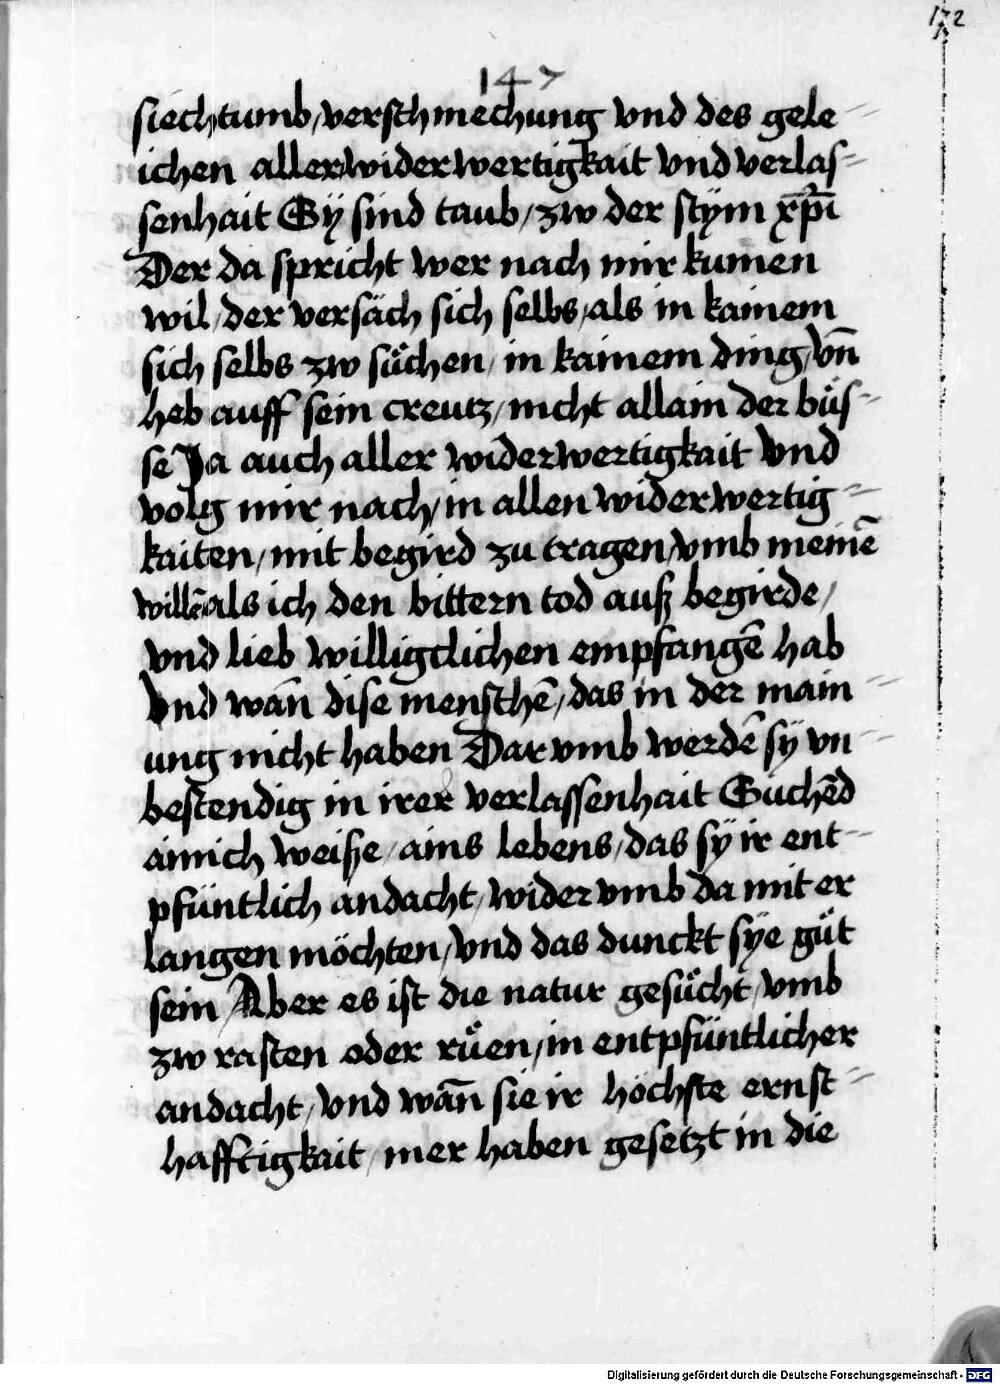 172
147
siechtumb/verschmechung vnd des gele-
ichen allerwiderwertigkait vnd verlas-
senhait Sÿ sind taub/zw der stÿm xp̄i
Der da spricht wer nach mir kumen
wil/der versäch sich selbs/als in kainem
sich selbs zw sůchen/in kainem ding/vn̄
heb auff sein creutz/nicht allain der bůs-
se Ja auch aller widerwertigkait vnd
volg mir nach/in allen widerwertig-
kaiten/mit begird zu tragen/vmb meinē
willē als ich den bittern tod auß begirde/
vnd lieb willigclichen empfangē hab
Vnd wan̄ dise menschē/das in der main-
ung nicht haben Dar vmb werdē sÿ vn-
bestendig in irer verlassenhait Suchēd
ainich weiße/ains lebens/das sÿ ir ent-
pfüntlich andacht/wider vmb da mit er
langen möchten/vnd das dunckt sÿe gůt
sein/Aber es ist die natur gesůcht/vmb
zw rasten oder růen/in entpfüntlicher
andacht/vnd wan̄ sie ir höchste ernst-
hafftigkait/mer haben gesetzt in die
Digitalisierung gefördert durch die Deutsche Forschungsgemeinschaft - DFG